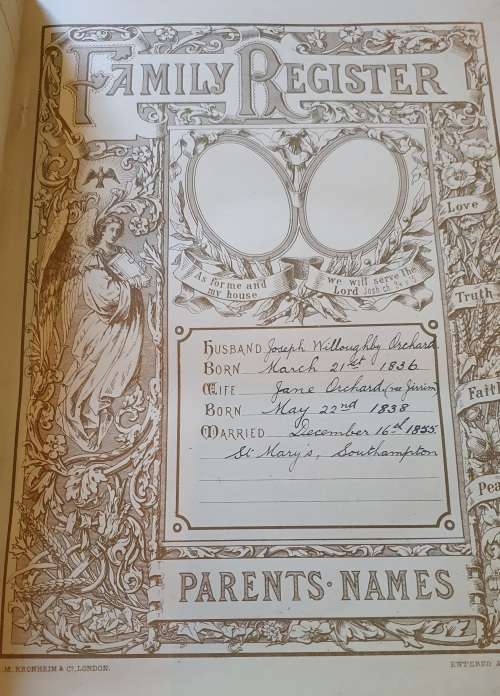 FAMILY REGISTER
As for me and my house
we will serve the Lord Josh. ch. 24 v. 15
Love
Truth
Faith
HUSBAND Joseph Willoughby Orchard.
BORN March 21st 1836
WIFE Jane Orchard (nee Jirrim)
BORN May 22nd 1838
MARRIED December 16th 1855.
St Mary's, Southampton
PARENTS · NAMES
M. KRONHEIM & CO, LONDON.
ENTERED